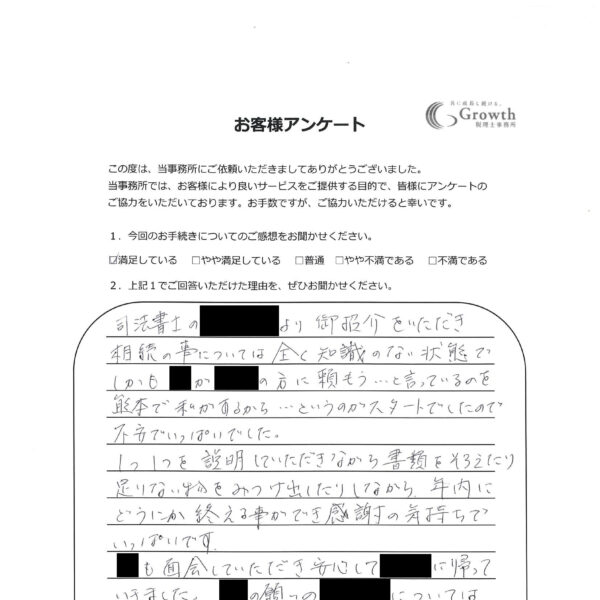 共に成長し続ける。
Growth
税理士事務所
お客様アンケート
この度は、当事務所にご依頼いただきましてありがとうございました。
当事務所では、お客様により良いサービスをご提供する目的で、皆様にアンケートの
ご協力をいただいております。お手数ですが、ご協力いただけると幸いです。
1．今回のお手続きについてのご感想をお聞かせください。
☑満足している □やや満足している □普通 □やや不満である □不満である
2．上記1でご回答いただけた理由を、ぜひお聞かせください。
司法書士の より 御紹介をいただき
相続の事については全く知識のない状態で
しかも が の方に頼もう…と言っているのを
熊本で私があるから…というのがスタートでしたので
不安でいっぱいでした。
1つ1つを説明していただきながら書類をそろえたり
足りない物をみつけ出したりしながら、年内に
どうにか終える事ができ感謝の気持ちで
いっぱいです。
も面会していただき安心して に帰って
いきました。 の願いの については